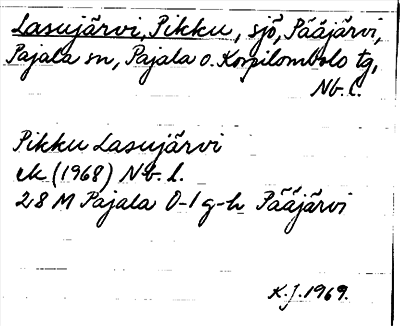 Lasujärvi, Pikku, sjö, Pääjärvi,
Pajala sn, Pajala o. Korpilombolo tg,
Nb. l.
Pikku Lasujärvi
ek (1968) Nb. l.
28 M Pajala 0-1 g-h Pääjärvi
K.J. 1969.